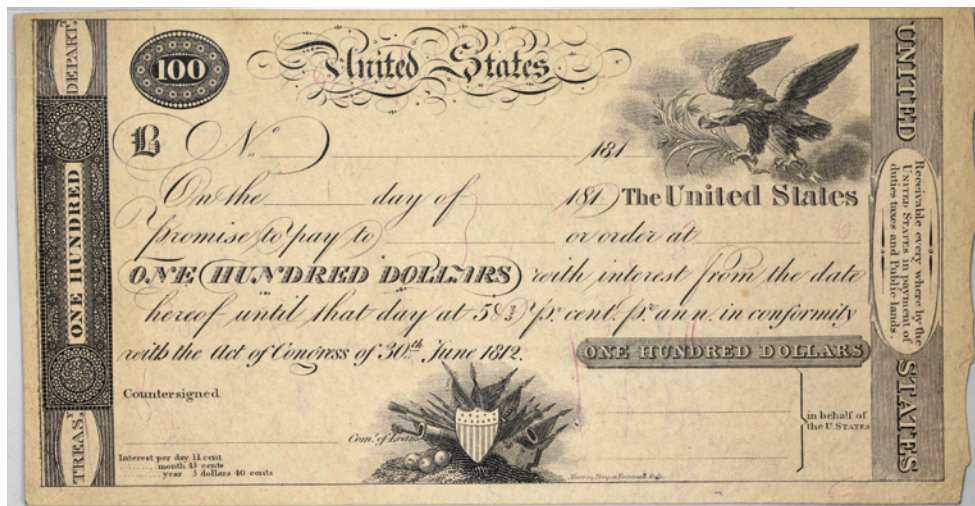 100
United States
B No. 181
On the day of 181 The United States
promise to pay to or order at
ONE HUNDRED DOLLARS with interest from the date
hereof until that day at 5 2/5 pr. cent. pr. ann. in conformity
with the Act of Congress of 30th June 1812.
ONE HUNDRED DOLLARS
Countersigned
Com. of Loans
Interest per day 1½ cent
month 45 cents
year 5 dollars 40 cents
in behalf of
the U. STATES
DEPART.
ONE HUNDRED
TREAS.
UNITED
Receivable every where by the
UNITED STATES in payment of
duties taxes and Public lands.
STATES